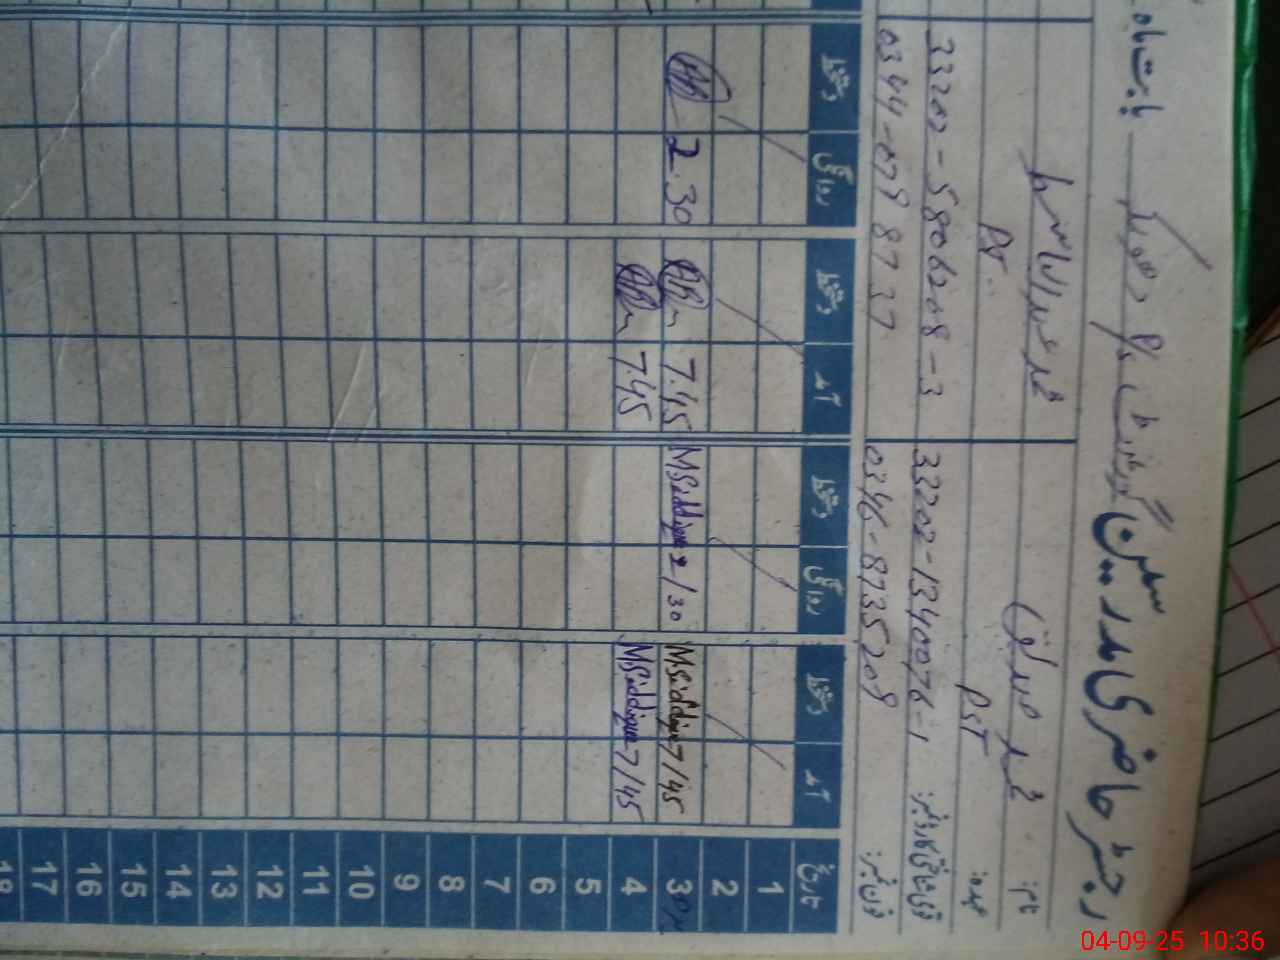 رجسٹر حاضری مدرسین گورنمنٹ
بابت ماہ
نام: محمد صدیق
عہدہ: PST
قومی شناختی کارڈ نمبر: 33202-1340076-1 33202-5806208-3
فون نمبر: 0346-8735209 0344-0798737
تاریخ آمد دستخط روانگی دستخط آمد دستخط روانگی دستخط
1
2
3 7/45 MSiddique 2/30 MSiddique 7.45 2.30
4 7/45 MSiddique 7.45
5
6
7
8
9
10
11
12
13
14
15
16
17
18
04-09-25 10:36